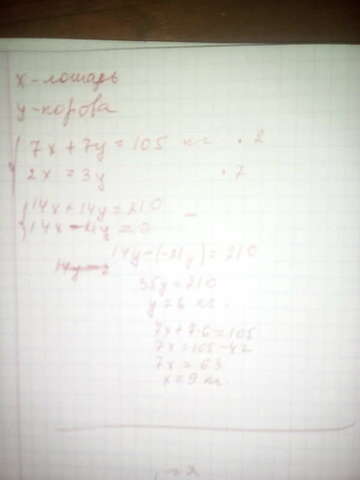 x - лошадь
y - корова
{ 7x + 7y = 105 кг · 2
2x = 3y · 7
{ 14x + 14y = 210 -
14x - 21y = 0
14y - (-21y) = 210
35y = 210
y = 6 кг
7x + 7·6 = 105
7x = 105 - 42
7x = 63
x = 9 кг